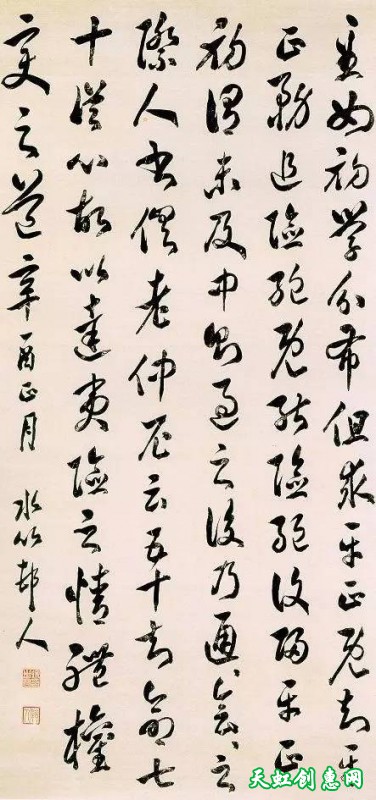 至如初學分布但求平正既知平
正務追險絕既能險絕復歸平正
初謂未及中則過之後乃通〻會〻之
際人書俱老仲尼云五十知命七
十從心故以達夷險之情體權
變之道辛酉正月 水竹邨人
天虹创惠网